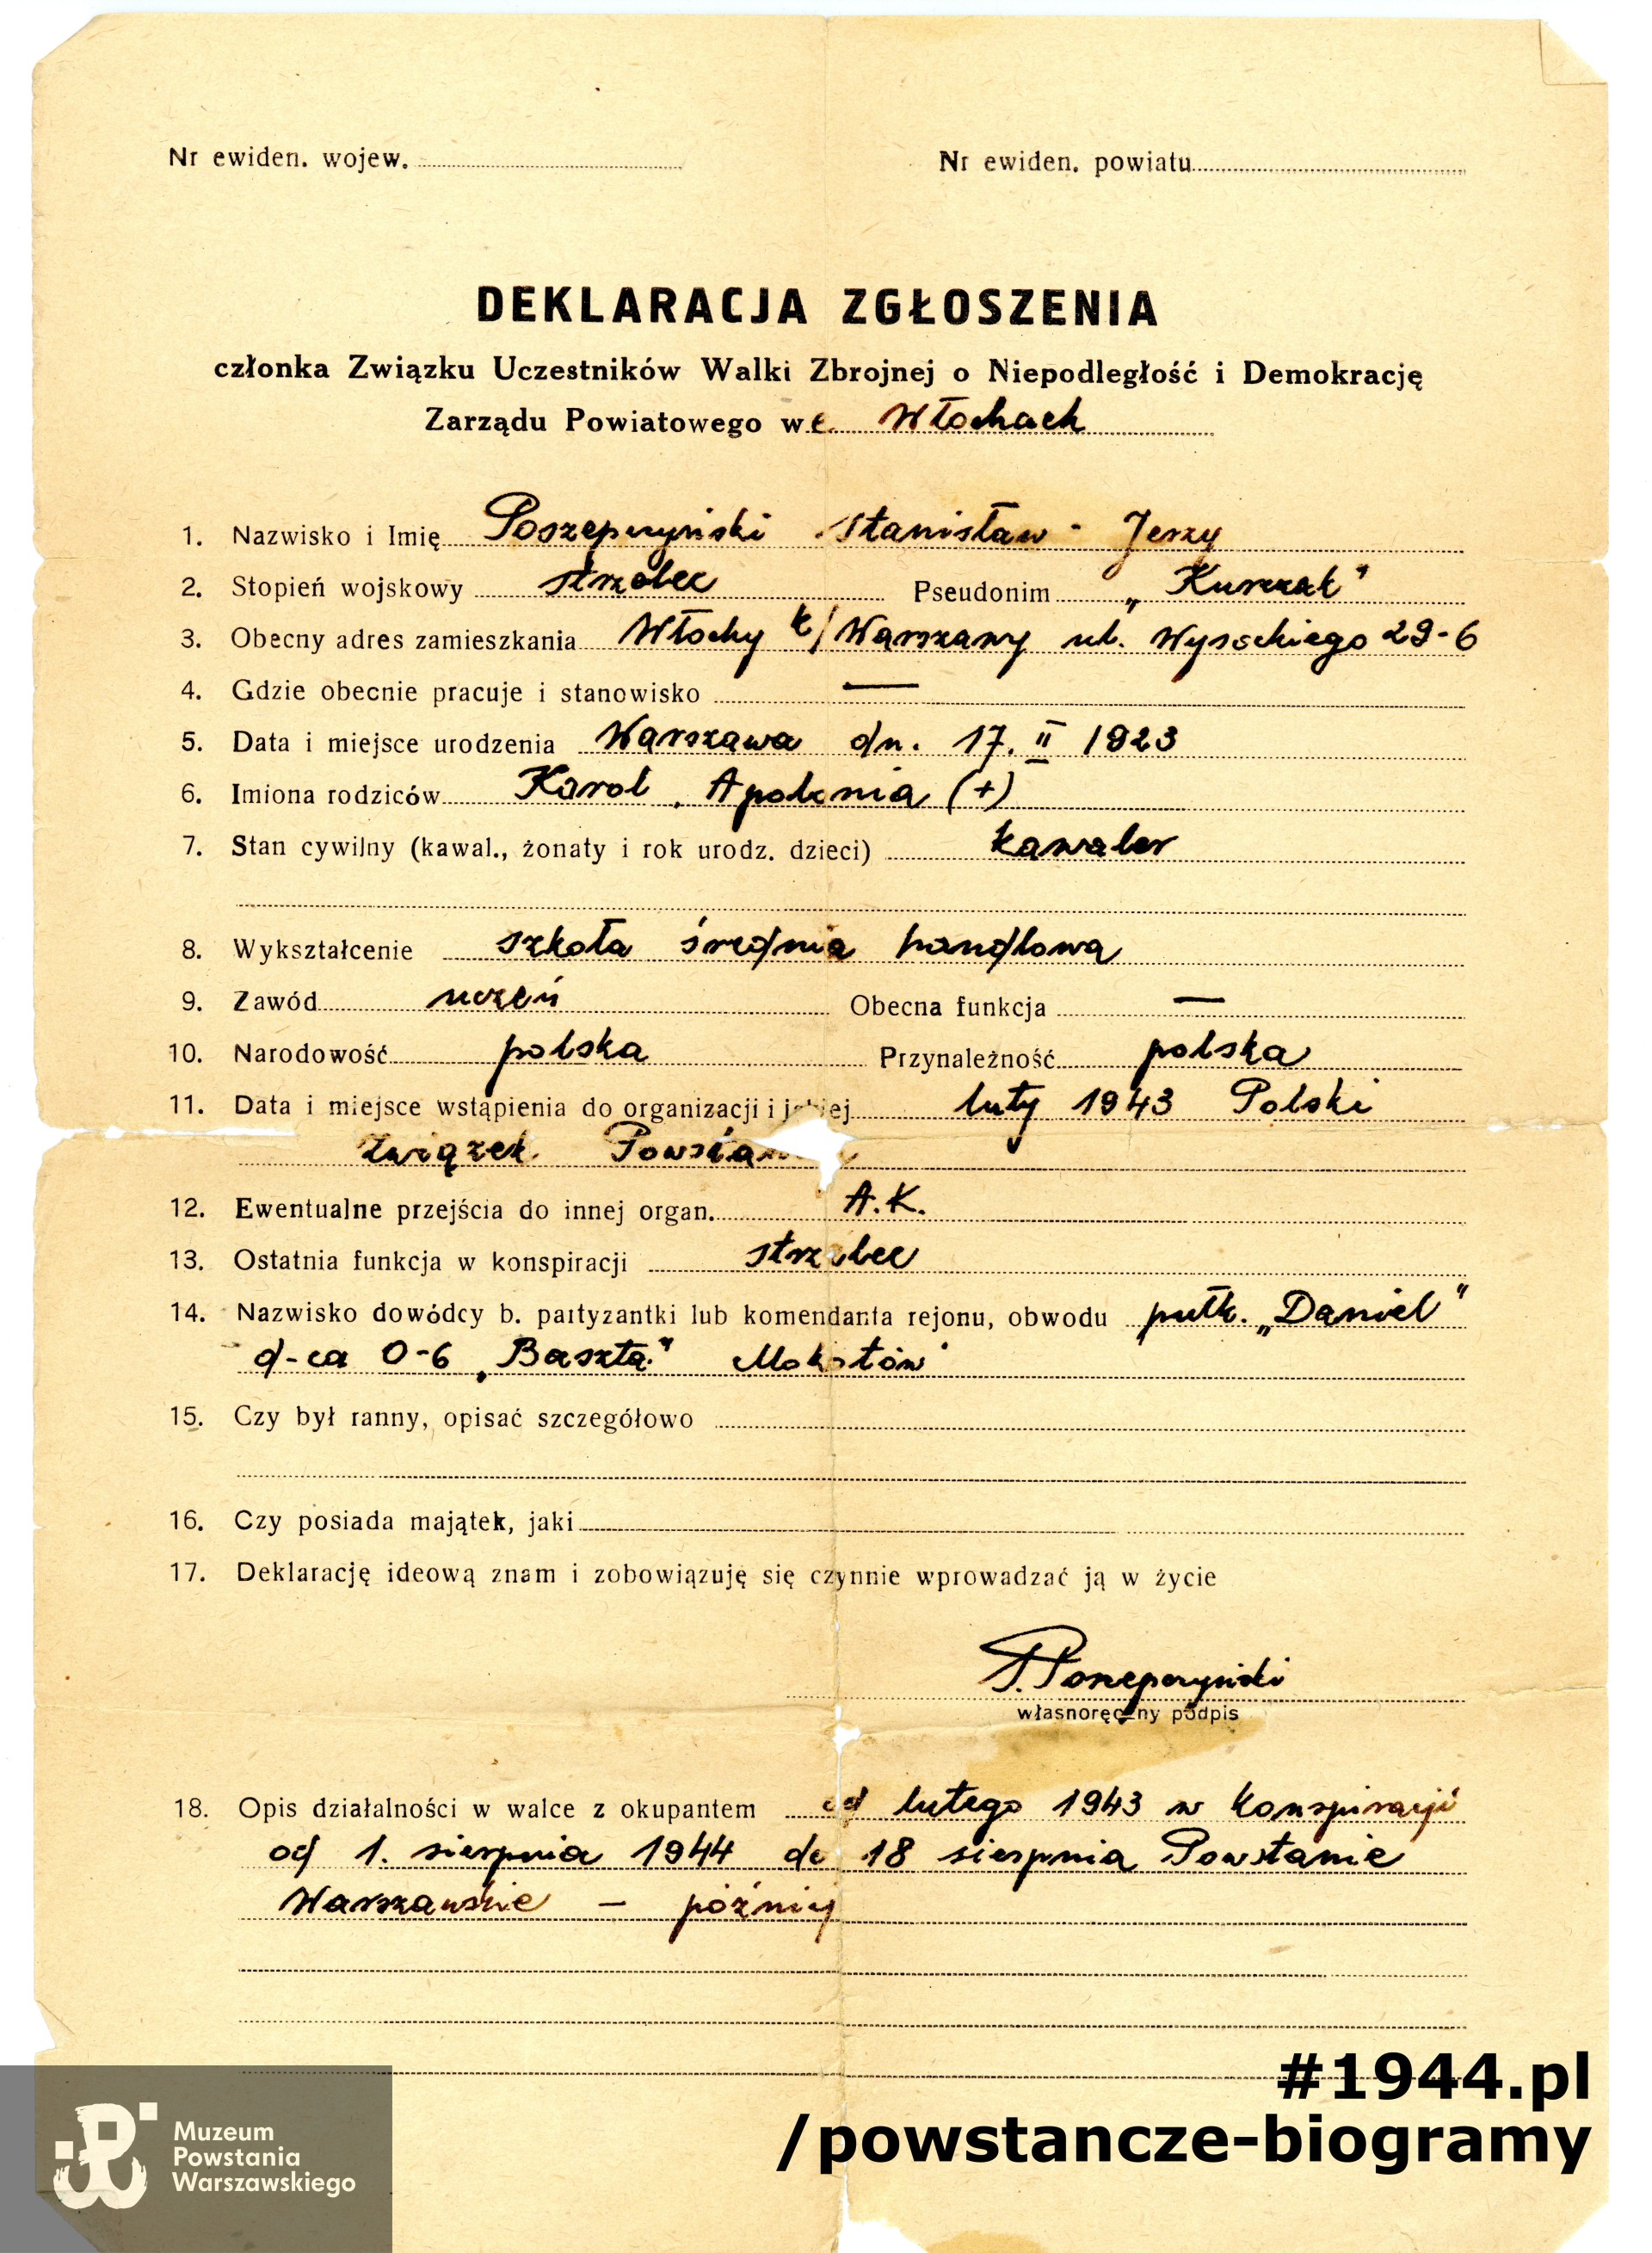 Nr ewiden. wojew. Nr ewiden. powiatu
DEKLARACJA ZGŁOSZENIA
członka Związku Uczestników Walki Zbrojnej o Niepodległość i Demokrację
Zarządu Powiatowego we Włochach
1. Nazwisko i Imię Poszepczyński Stanisław - Jerzy
2. Stopień wojskowy strzelec Pseudonim „Kurczak"
3. Obecny adres zamieszkania Włochy k/Warszawy ul. Wysockiego 29-6
4. Gdzie obecnie pracuje i stanowisko —
5. Data i miejsce urodzenia Warszawa dn. 17. II 1923
6. Imiona rodziców Karol, Apolonia (+)
7. Stan cywilny (kawal., żonaty i rok urodz. dzieci) kawaler
8. Wykształcenie szkoła średnia handlowa
9. Zawód uczeń Obecna funkcja —
10. Narodowość polska Przynależność polska
11. Data i miejsce wstąpienia do organizacji i jakiej luty 1943 Polski
Związek
12. Ewentualne przejścia do innej organ. A.K.
13. Ostatnia funkcja w konspiracji strzelec
14. Nazwisko dowódcy b. partyzantki lub komendanta rejonu, obwodu pułk. „Daniel"
d-ca O-6 „Baszta" Mokotów
15. Czy był ranny, opisać szczegółowo
16. Czy posiada majątek, jaki
17. Deklarację ideową znam i zobowiązuję się czynnie wprowadzać ją w życie
Poszepczyński
własnoręczny podpis
18. Opis działalności w walce z okupantem od lutego 1943 w konspiracji
od 1. sierpnia 1944 do 18 sierpnia Powstanie
Warszawskie — później
#1944.pl
/powstancze-biogramy
Muzeum
Powstania
Warszawskiego